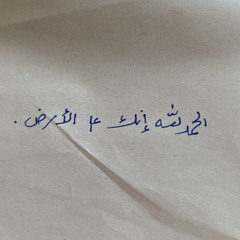 الحمد لله إنك ع الأرض.